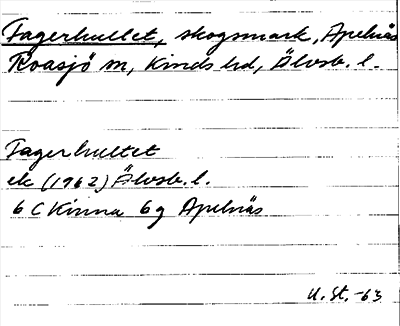 Fagerhultet, skogsmark, Apelnäs
Roasjö sn, Kinds hd, Älvsb. l.
Fagerhultet
ek (1962) Älvsb. l.
6 C Kinna 6 g Apelnäs
U. St. -63